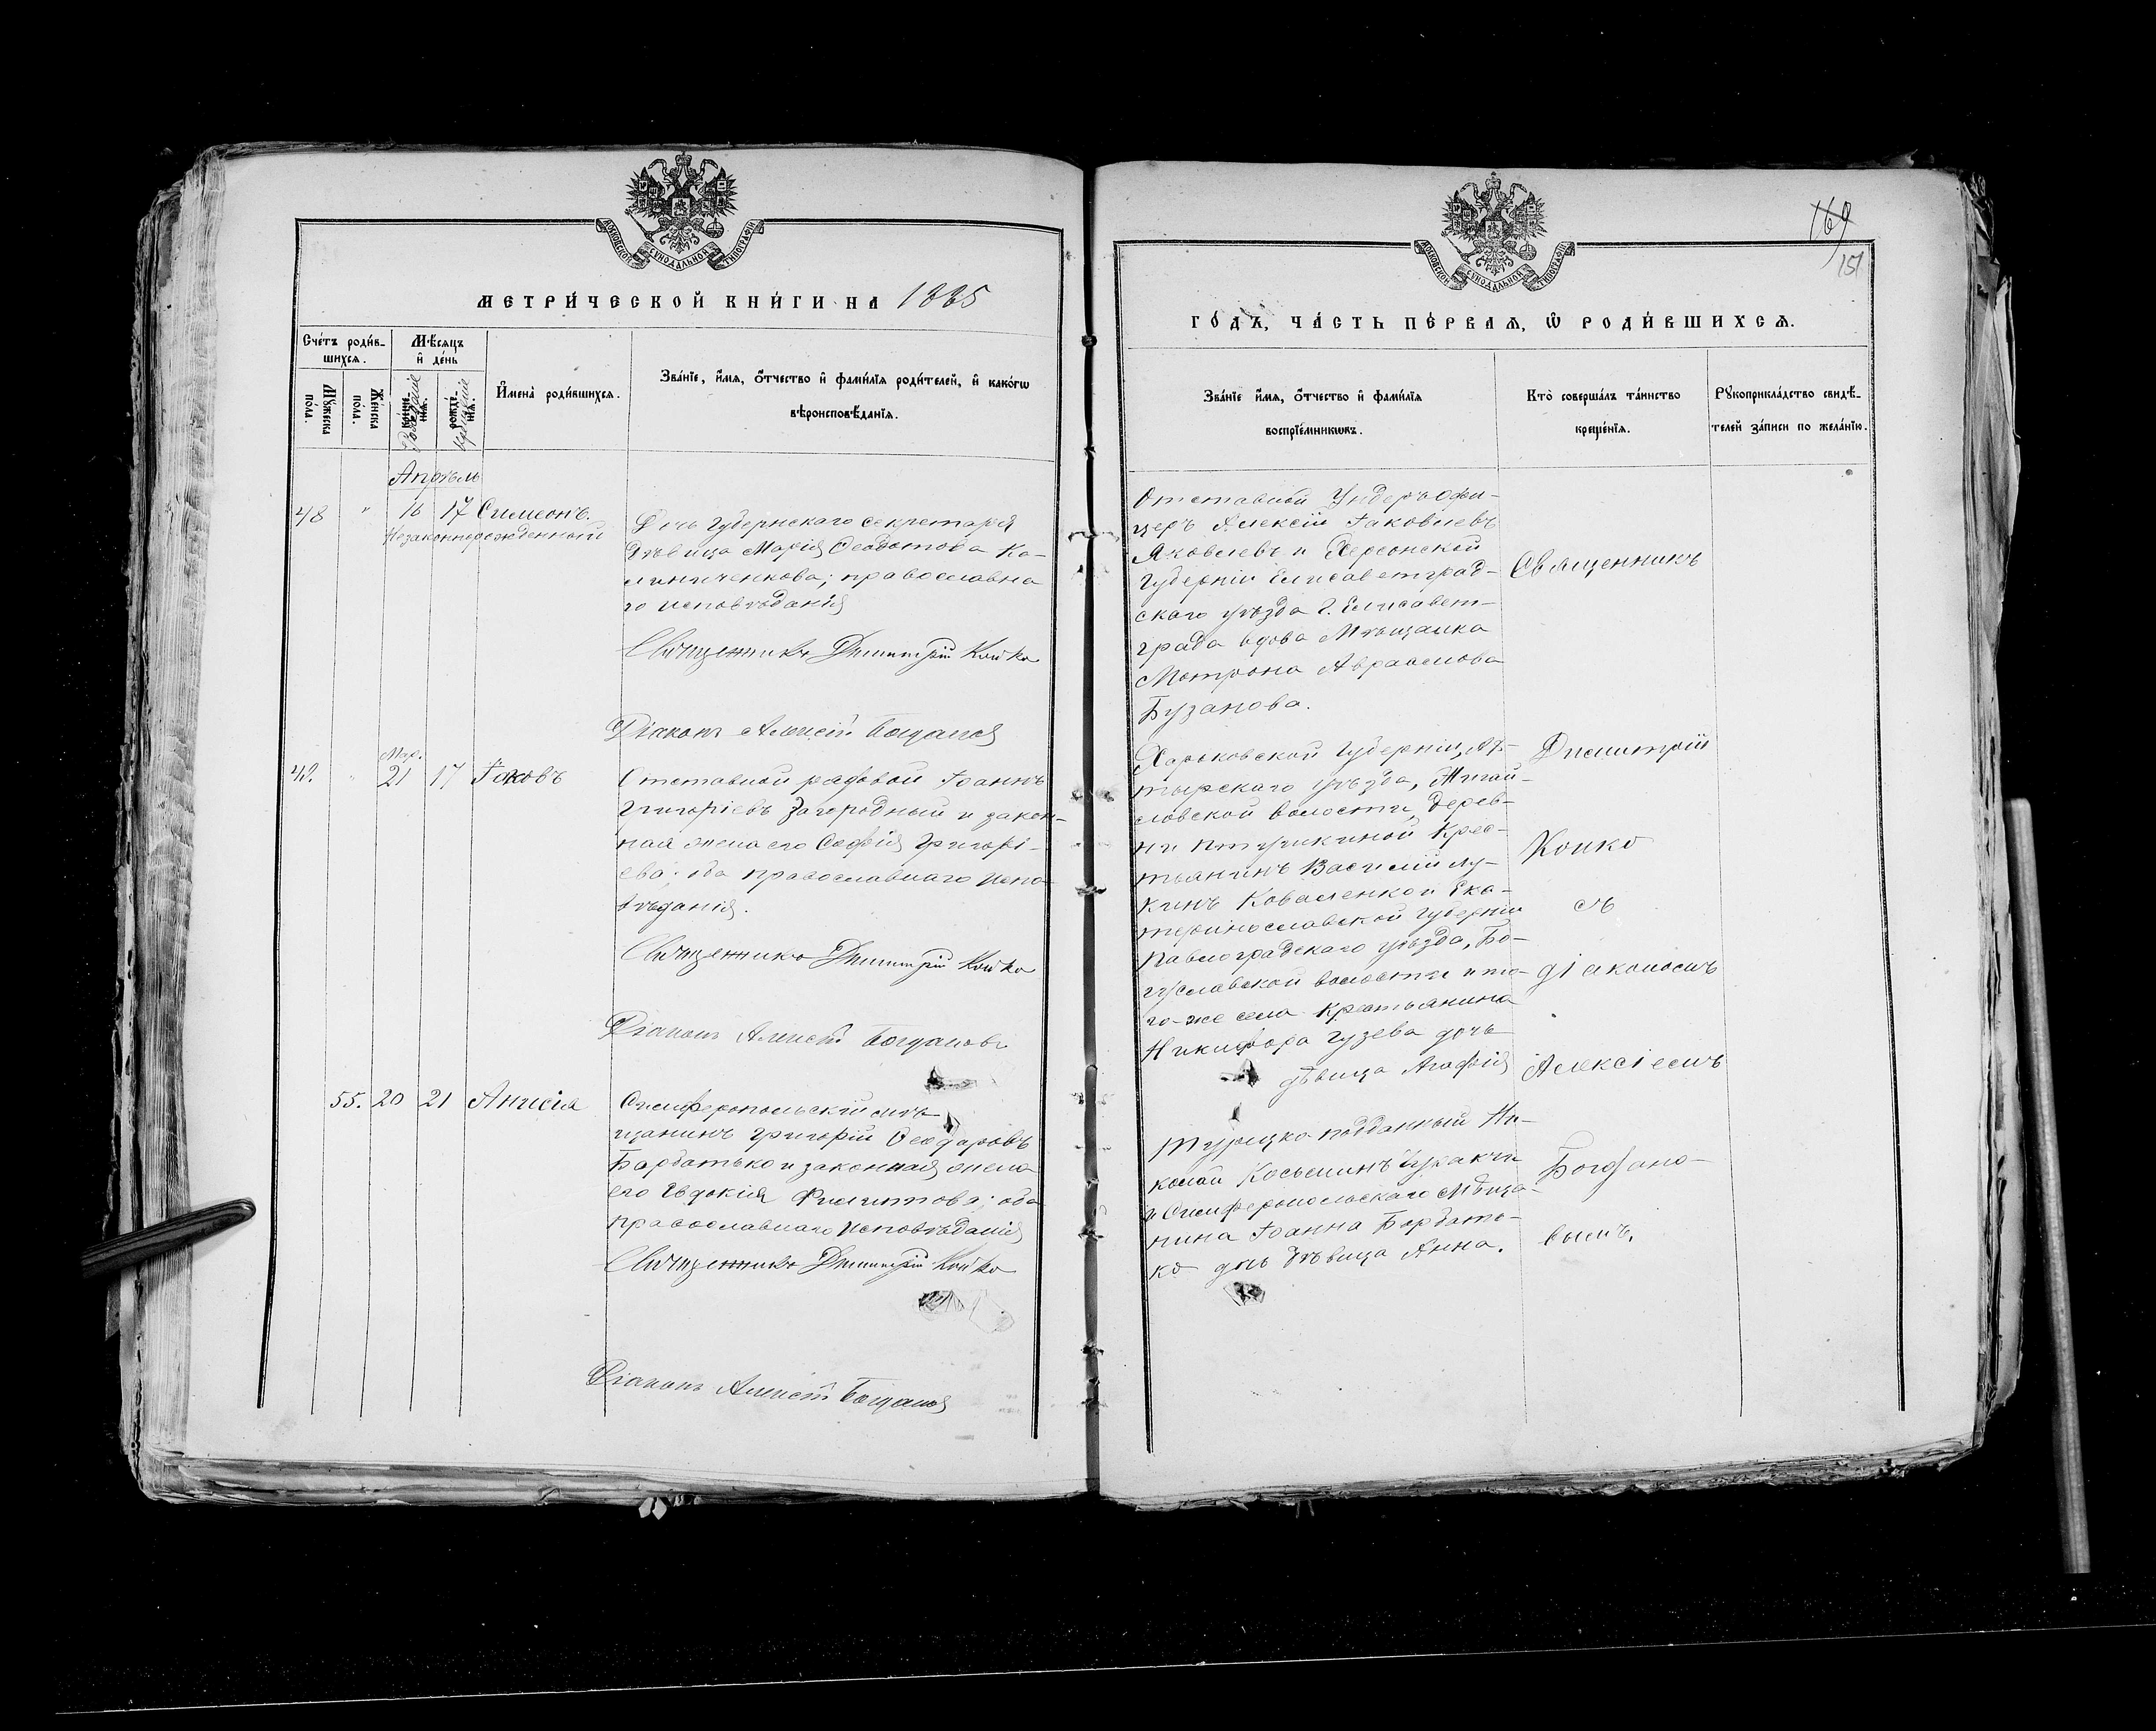 МОСКОВСКОЙ СУНОДАЛЬНОЙ ТИПОГРАФІИ
МЕТРИ́ЧЕСКОЙ КНИ́ГИ НА 1885
Сче́тъ роди́в-
шихсѧ.
Мѣ́сѧцъ
и҆ де́нь
Мꙋ́жеска
по́ла.
Же́нска
по́ла.
Рожденіе
рожде́-
нїѧ.
Крещеніе
И҆мена̀ роди́вшихсѧ.
Зва́нїе, и҆́мѧ, ѻ҆́тчество и҆ фами́лїѧ роди́телей, и҆ како́гѡ
вѣроисповѣ́данїѧ.
Апрѣль
48 " 16 17 Симеонъ.
Незаконнорожденный
Дочь Губернскаго секретаря
Дѣвица Марія Феодотова Ка-
линиченкова; православна
го исповѣданія
Священникъ Димитрій Койко
Діаконъ Алексій Богдановъ
Мар.
49. " 21 17 Іаковъ
Отставной рядовой Іоаннъ
Григоріевъ Загородный и закон-
ная жена его Софія Григорі-
ева; оба православнаго испо-
вѣданія.
Священникъ Димитрій Койко
Діаконъ Алексій Богдановъ
55. 20 21 Анисія
Симферопольскій мѣ-
щанинъ Григорій Феодоровъ
Бардатько и законная жена
его Евдокія Филиппова; оба
православнаго исповѣданія
Священникъ Димитрій Койко
Діаконъ Алексій Богдановъ
169
151
МОСКОВСКОЙ СУНОДАЛЬНОЙ ТИПОГРАФІИ
ГО́ДЪ, ЧА́СТЬ ПЕ́РВАѦ, Ѡ҆ РОДИ́ВШИХСѦ.
Зва́нїе и҆́мѧ, ѻ҆́тчество и҆ фами́лїѧ
воспрїе́мникѡвъ.
Кто̀ соверша́лъ та́инство
креще́нїѧ.
Рꙋкоприкла́дство свидѣ́-
телей за́писи по жела́нїю.
Отставной Ундеръ Офи-
церъ Алексій Іаковлевъ
Яковлевъ и Херсонской
Губерніи Елисаветград-
скаго уѣзда г. Елисавет-
града вдова Мѣщанка
Матрона Авраамова
Бузанова.
Харьковской Губерніи, Ах-
тырскаго уѣзда,
словской волости, Дерев-
ни Птушкиной Крес-
тьянинъ Василій Лу-
кинъ Коваленко и Ека-
теринославской Губерніи
Павлоградскаго уѣзда, Бо-
гуславской волости и то-
го-же села Крестьянина
Никифора Гузева дочь
дѣвица Агафія
Турецко-подданный Ни-
колай Косьминъ
и Симферопольскаго Мѣща-
нина Іоанна Бардать-
ко дочь дѣвица Анна.
Священникъ
Димитрій
Койко
съ
діакономъ
Алексіемъ
Богдано-
вымъ.